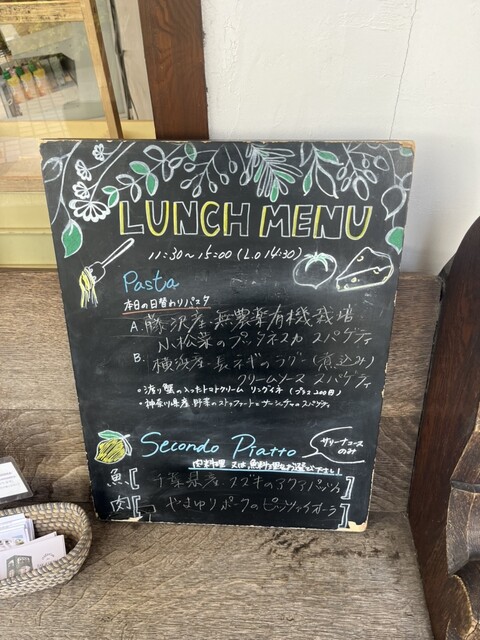 LUNCH MENU
11:30〜15:00 (L.O 14:30)
Pasta
本日の日替わりパスタ
A. 藤沢産 無農薬有機栽培
小松菜のプッタネスカ スパゲティ
B. 横浜産 長ネギのラグー(煮込み)
クリームソース スパゲティ
・渡り蟹の入ったトマトクリーム リングイネ (プラス200円)
・神奈川県産 野菜の スパゲティ
Secondo Piatto
サリーナコース
のみ
肉料理 又は、魚料理 お選び下さい!
魚[千葉県産 スズキのアクアパッツァ]
肉[やまゆりポークのピッツァイオーラ]